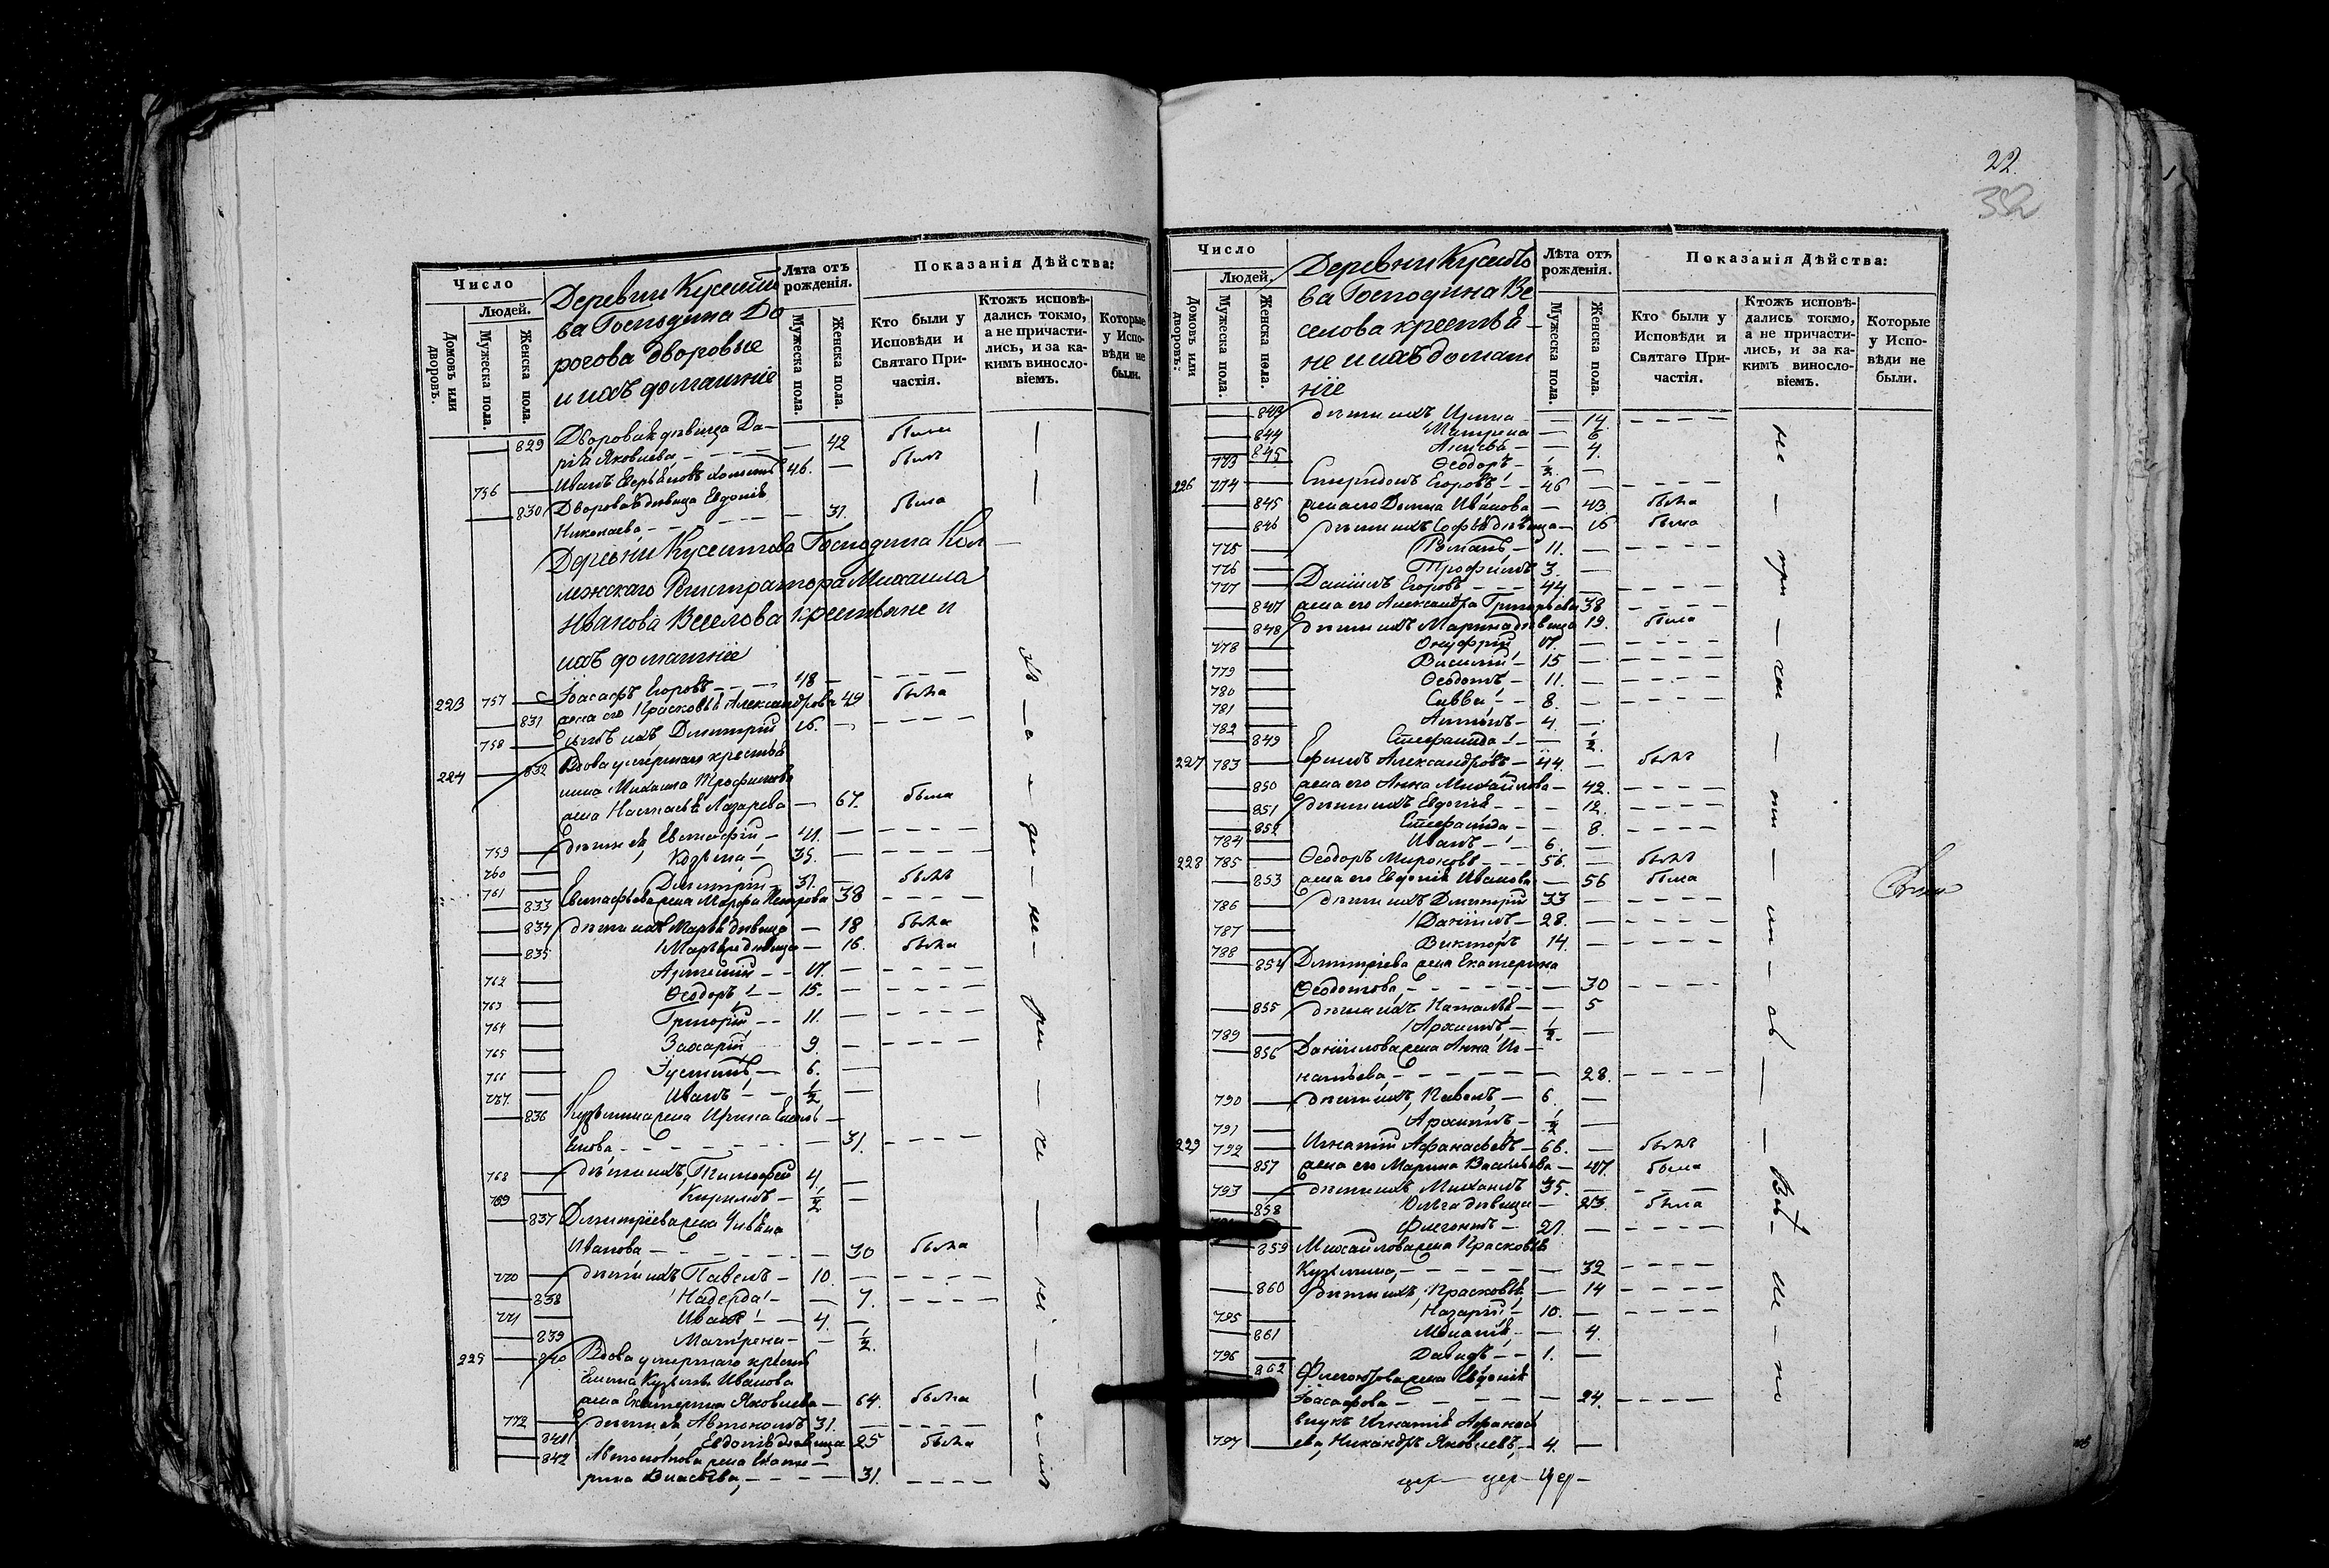 Число
Людей.
Домовъ или дворовъ.
Мужеска пола.
Женска пола.
Деревни Кусешто
ва Господина До
рогова дворовые
и ихъ домашніе
Лѣта отъ рожденія.
Мужеска пола.
Женска пола.
Показанія Дѣйства:
Кто были у Исповѣди и Святаго Причастія.
Ктожъ исповѣдались токмо, а не причастились, и за какимъ винословіемъ.
Которые у Исповѣди не были.
829 Дворовая дѣвица Да-
рія Яковлева 42 была
756 Иванъ 46. былъ
830 Дворовая дѣвица Евдокія
Николаева 31. была
Деревни Кусештова Господина Кол
лежскаго Регистратора Михаила
Иванова Веселова крестьяне и
ихъ домашніе
223 757 Іоасафъ Егоровъ 48
831 жена его Прасковья Александрова 49 была
758 сынъ ихъ Димитрій 16.
224 832 Вдова умершаго крестья
нина Михаила Трофимова
жена Настасья Лазарева 67. была
759 дѣти ея Евстафій 41.
760 Козьма 35.
761 Димитрій 31. былъ
833 Евстафьева жена Марфа Петрова 38
834 дѣти ихъ Марья дѣвица 18 была
835 Марья дѣвица 16. была
762 Артемій 17.
763 Ѳеодоръ 15.
764 Григорій 11.
765 Захарій 9
766 Іустинъ 6.
767. Иванъ ½
836 Кузьмина жена Ирина
31.
768 дѣти ихъ, Тимофей 4.
769 Кирилъ ½
837 Димитріева жена Ульяна
Иванова 30 была
770 дѣти ихъ Павелъ 10.
838 Надежда 7.
771 Иванъ 4.
839 Матрена ½.
225 840 Вдова умершаго кресть
янина Кузьмы Иванова
жена Екатерина Яковлева 64. была
772 дѣти ея, Автономъ 31.
841 Евдокія дѣвица 25 была
842 Автономова жена Екате-
рина Власьева, 31.
22.
382
Число
Людей.
Домовъ или дворовъ:
Мужеска пола.
Женска пола.
Деревни Кусешто
ва Господина Ве
селова крестья-
не и ихъ домаш
ніе
Лѣта отъ рожденія.
Мужеска пола.
Женска пола.
Показанія Дѣйства:
Кто были у Исповѣди и Святаго Причастія.
Ктожъ исповѣдались токмо, а не причастились, и за какимъ винословіемъ.
Которые у Исповѣди не были.
843 дѣти ихъ Ирина 14.
844 Матрена 6
845 4.
773 Ѳеодоръ ½
226 774 Спиридонъ Егоровъ 46
845 жена его Домна Иванова 43. была
846 дѣти ихъ Софья дѣвица 16 была
775 Романъ 11.
776 Трофимъ 3
777 Даніилъ Егоровъ 44
847 жена его Александра Григорьева 38
848 дѣти ихъ Марина дѣвица 19. была
778 Онуфрій 17.
779 Василій 15
780 Ѳеодотъ 11.
781 Савва 8.
782 Антонъ 4.
849 Степанида ½.
227 783 Ефимъ Александровъ 44. былъ
850 жена его Анна Михайлова 42.
851 дѣти ихъ Евдокія 12.
852 Степанида 8.
784 Иванъ 6.
228 785 Ѳеодоръ Мироновъ 56. былъ
853 жена его Евдокія Иванова 56 была
786 дѣти ихъ Димитрій 33
787 Даніилъ 28.
788 Викторъ 14.
854 Димитріева жена Екатерина
Ѳеодотова 30
855 дѣти ихъ Наталья 5
789 Архипъ ½
856 Даніилова жена Анна Иг-
натьева 28.
790 дѣти ихъ, Павелъ 6.
791 Архипъ ½
229 792 Игнатій Афанасьевъ 66. былъ
857 жена его Марина Васильева 47. была
793 дѣти ихъ Михаилъ 35.
858 Ольга дѣвица 23. была
Флегонтъ 21.
859 Михайлова жена Прасковья
Кузьмина 32
860 дѣти ихъ, Прасковья 14
795 Назарій 10.
861 Меланія 4.
796 Давидъ 1.
862 Флегонтова жена Евдокія
Іоасафова 24.
внукъ Игнатія Афанась
797 ева, Никандръ Яковлевъ 4.